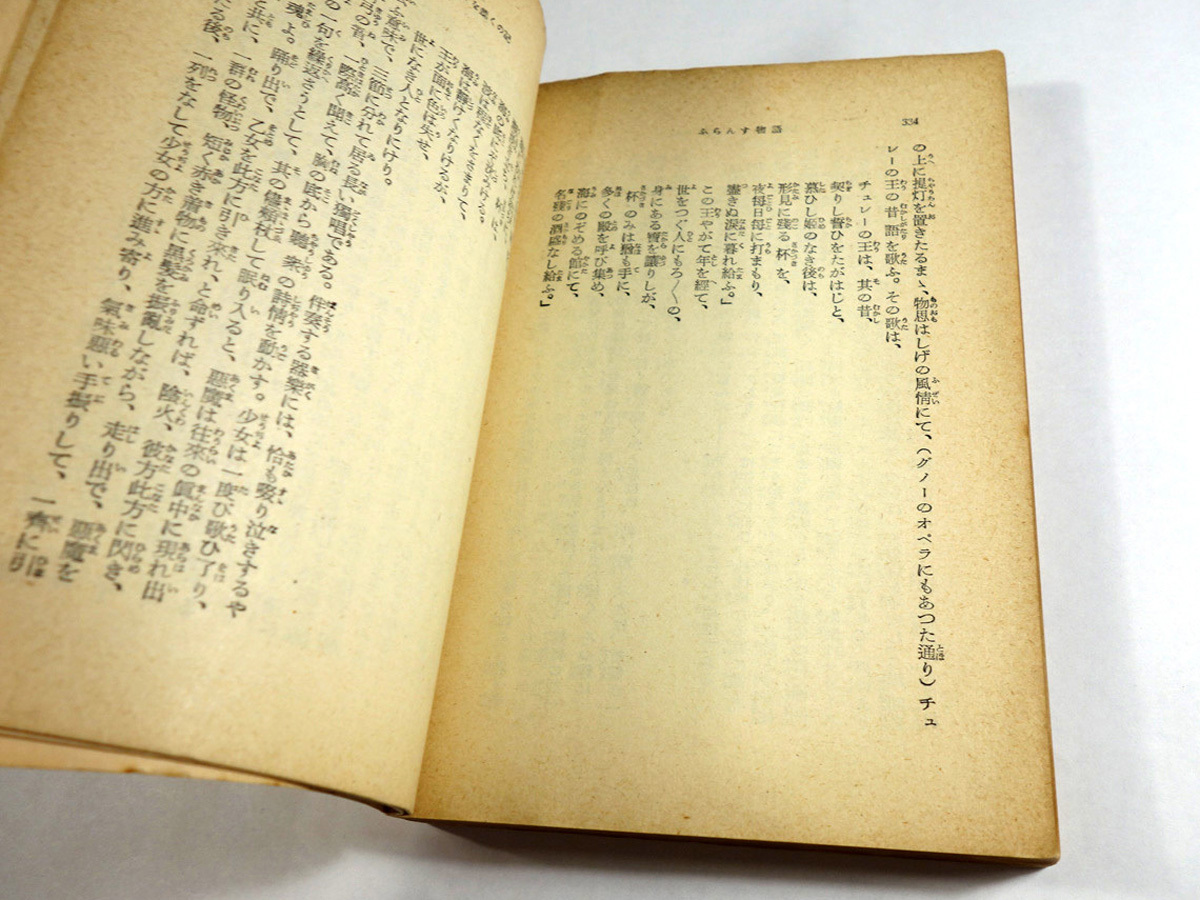 334
ふらんす物語
の上に提灯を置きたるまゝ、物思はしげの風情にて、(グノーのオペラにもあつた通り)チュ
レーの王の昔語を歌ふ。その歌は、
チュレーの王は、其の昔、
契りし誓ひをたがはじと、
慕ひし姫のなき後は、
形見に殘る杯を、
夜毎日毎に打まもり、
盡きぬ涙に暮れ給ふ。
この王やがて年を經て、
世をつぐ人にもろ〳〵の、
身にある寶を讓りしが、
杯のみは猶も手に、
多くの殿を呼び集め、
海にのぞめる館にて、
名殘の酒盛なし給ふ。」
王が面に色は失せ、
世になき人となりにけり。
意味で、三節に分れて居る長い獨唱である。伴奏する器樂には、恰も啜り泣きするや
弓の音、一際高く聞えて、胸の底から聽衆の詩情を動かす。少女は一度び歌ひ了り、
の一句を繰返さうとして、其の儘頬杖して眠り入ると、惡魔は往來の眞中に現れ出
魂よ。踊り出で、乙女を此方に引き來れ、と命ずれば、陰火、彼方此方に閃き、
と共に、一群の怪物、短く赤き着物に黒髪を振亂しながら、走り出で、惡魔を
たる後、一列をなして少女の方に進み寄り、氣味惡い手振りして、一齊に